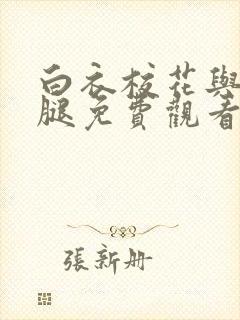 白衣校花與
腿免費觀看
張新册